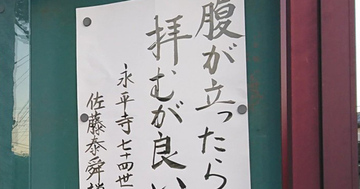 腹が立ったら
拝むが良い
永平寺七十四世
佐藤泰舜